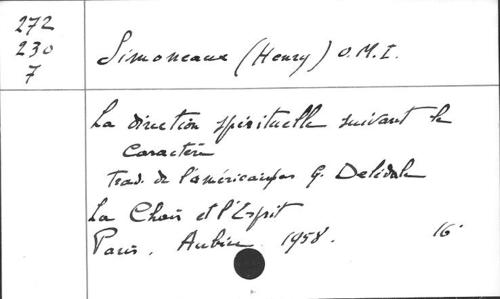 272
230
7
Simoneaux (Henry) O.M.I.
La direction spirituelle suivant le
caractère
Trad. de l'américain par G. Deledalle
La Chair et l'Esprit
Paris. Aubier. 1958. 16°